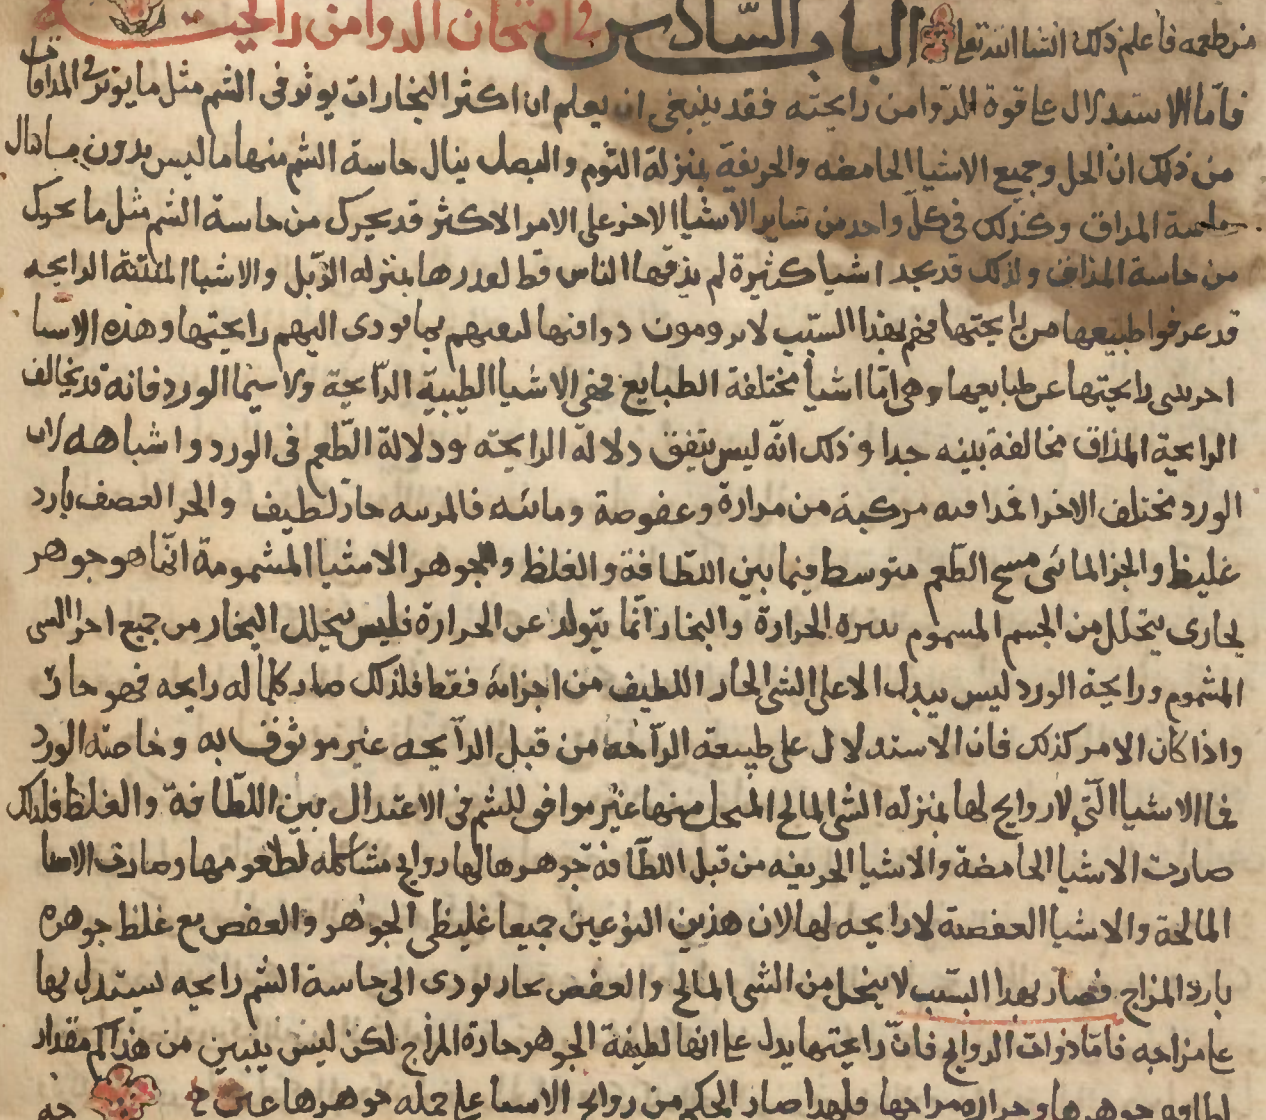 من طعمه فاعلم ذلك انشا الله تعلى الباب السادس في امتحان الدوا من رايحته
فاما الاستدلال على قوة الدوا من رايحته فقد ينبغى ان يعلم ان اكثر البخارات يوثر فى الشم مثل ما يوثر فى المداق
من ذلك ان الخل وجميع الاشيا الحامضه والحريفة بمنزلة الثوم والبصل ينال حاسة الشم منها ما ليس بدون ما ينال
حاسة المداق وكذلك فى كل واحد من ساير الاشيا الاخر على الامر الاكثر قد يحرك من حاسة الشم مثل ما يحرك
من حاسة المذاق ولذلك قد يجد اشيا كثيرة لم يذقها الناس قط لقدرها بمنزله الزبل والاشيا المنتنة الرايحه
قد عرفوا طبيعها من رايحتها فهم بهذا السبب لا يرومون دواقتها لثقتهم بما تودى اليهم رايحتها وهذه الاشيا
رايحتها عن طبايعها وهى اما اشيا مختلفة الطبايع فهى الاشيا الطيبية الرايحة ولا سيما الورد فانه قد يخالف
الرايحية المذاق مخالفة بينه جدا وذلك انه ليس يتفق دلالة الرايحته ودلالة الطعم فى الورد واشباهه لان
الورد مختلف الاجزا مركبة من مرارة وعفوصة ومائيه فالمر منه حار لطيف والجز العفص بارد
غليظ والجز المائى مسح الطعم متوسط فيما بين اللطافة والغلظ والجوهر الاشيا المشمومة انما هو جوهر
بخارى يتحلل من الجسم المشموم الحرارة والبخار انما يتولد عن الحرارة فليس يتحلل البخار من جميع اجزا الشى
المشموم ورايحة الورد ليس يدل الا على الشى الحار اللطيف من اجزائه فقط فلذلك صار كلما له رايحه فهو حار
واذا كان الامر كذلك فان الاستدلال على طبيعة الرايحه من قبل الرايحه غير موثوق به وخاصة الورد
فى الاشيا التى لا روايح لها بمنزله الشى المالح المتحلل منها غير موافق للشم فى الاعتدال بين اللطافة والغلظ فلذلك
صارت الاشيا الحامضة والاشيا الحريفه من قبل اللطافة جوهرها لها روايح مشاكله لطعومها وصارت الاشيا
المالحة والاشيا العفصة لا رايحه لها لان هذين النوعين جميعا غليظى الجوهر والعفص مع غلظ جوهره
بارد المزاج فصار بهذا السبب لا يتحلل من الشى المالح والعفص بخار يودى الى حاسة الشم رايحه يستدل بها
على مزاجه فاما ذوات الروايح فان رايحتها يدل على انها لطيفة الجوهر حارة المزاج لكن ليس يتبين من هذا كم مقدار
لطافة جوهرها وحرارة مزاجها فلهذا صار الحكم من روايح الاشيا على جمله جوهرها